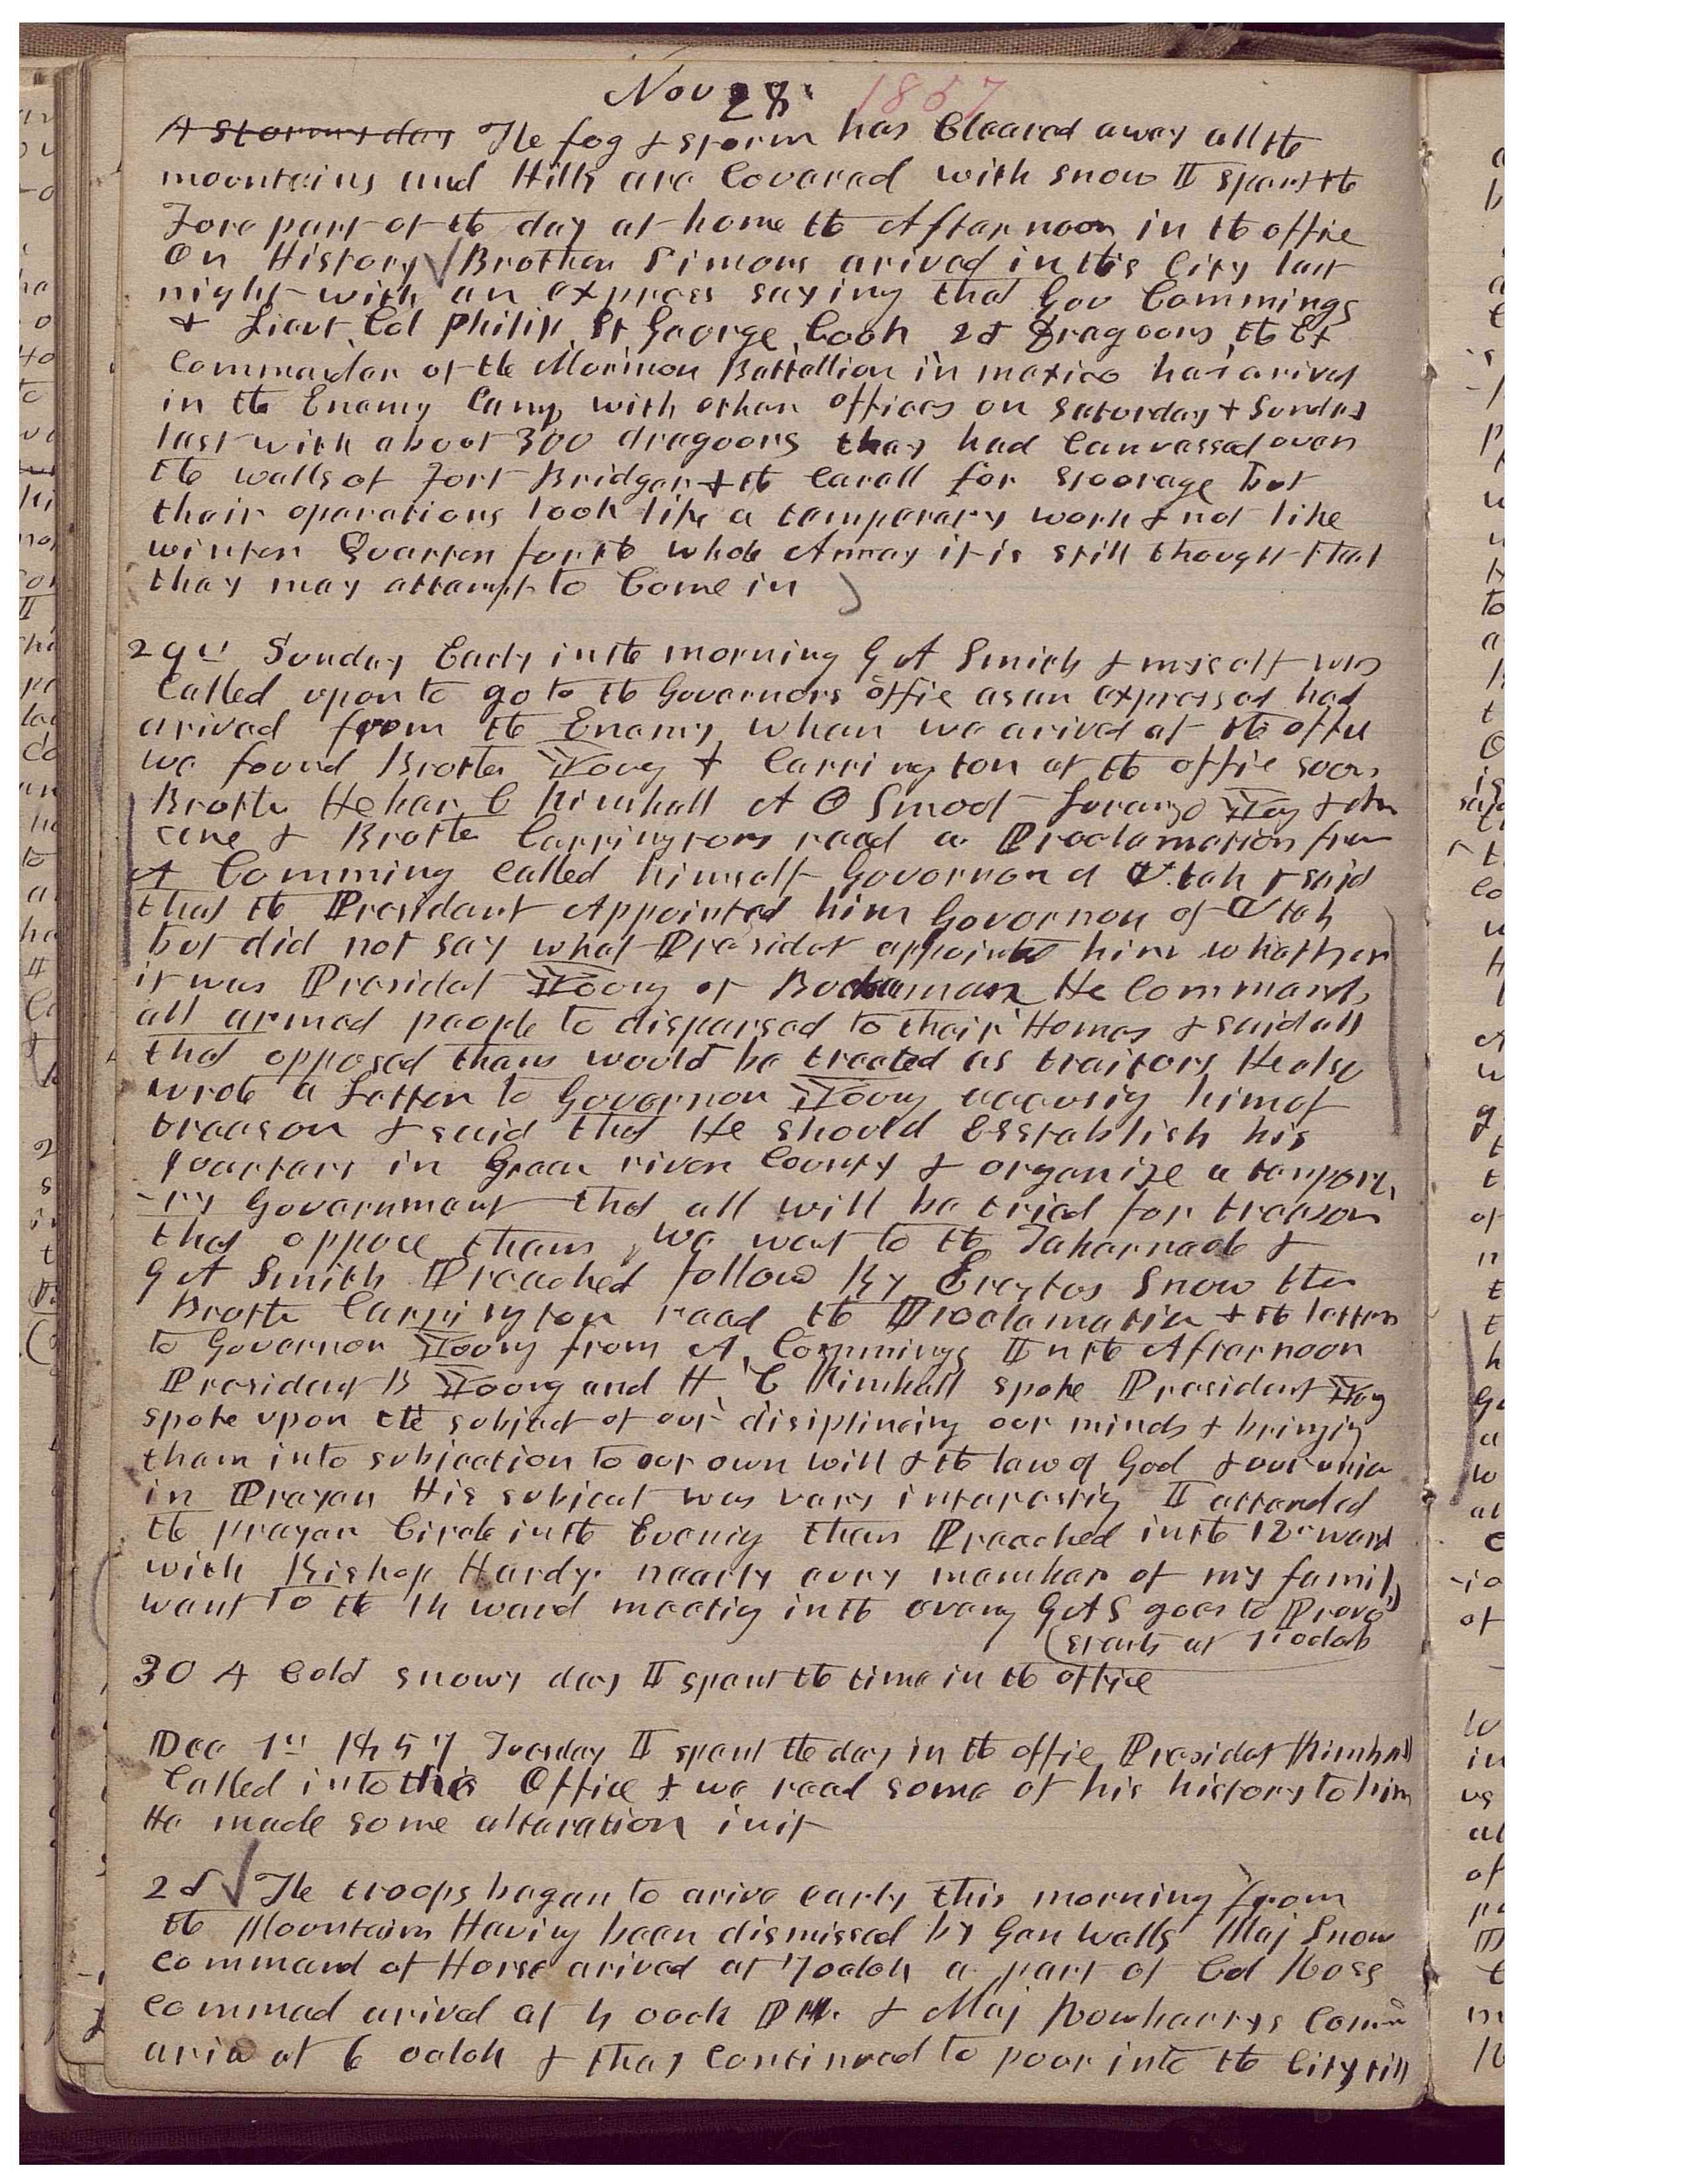 Nov 28 1857
A stormy day The fog & storm has Cleared away all the
mountains and Hills are Covered with snow I spent the
Fore part of the day at home the Afternoon in the office
On History Brother Simons arived in this City last
night with an express saying that Gov Commings
& Lieut Col Philip St George Cook 2d Dragoons the Ex
Commander of the Mormon Battallion in mexico has arived
in the Enemy Camp with other offices on Saturday & Sunday
last with about 300 dragoons they had Canvassed over
the walls of Fort Bridger & the Carall for stoorage but
their operations look like a temperary work & not like
winter Quarter for the whole Armey it is still thought that
they may attempt to Come in
29th Sunday Early in the morning G A Smith & myself was
Called upon to go to the Governors offie as an expressed had
arived from the Enemy when we arived at the offie
we found Brother Young & Carrington at the offie soon
Brother Heber C Kimball A O Smoot Lorenzo Young & other
came & Brother Carringtons read a Proclamation from
A Comming Called himself Governor of Utah & said
that the President Appointed him Governor of Utah
but did not say what Presidet appointed him whether
it was Presidet Young or Buchanan He Commands
all armed people to dispersed to their Homes & said all
that opposed them would be treated as traitors He also
wrote a Letter to Governor Young accusig him of
treason & said that He should Esstablish his
quarters in Green river County & organize a tempor
-ry Government that all will be tried for treason
that oppose them, we went to the Tabernacle &
G A Smith Preached follow By Erastus Snow then
Brother Carrington read the Proclamation & the letter
to Governor Young from A. Commings In the Afternoon
President B Young and H. C Kimball spoke President Young
spoke upon the subject of our disiplining our minds & bringig
them into subjection to our own will & the law of God & our union
in Prayer His subject was very interestig I attended
the prayer Circle in the Evenig then Preached in the 12th ward
with Bishop Hardy. nearly evry member of my family
went to the 14 ward meetig in the eveng G A S goes to Provo
(starts at 1 oclok
30 A Cold snowy day I spent the time in the office
Dec 1st 1857 Tuesday I spent the day in the offie Presidet Kimball
Called into this Office & we read some of his history to him
He made some alteration in it
2d The troops began to arive early this morning from
the Mountains Having been dismissed by Gen Wells Maj Snow
command of Horse arived at 7 oclok a part of Col Ross
commad arived at 4 oock PM. & Maj Rowberrys Comd
arive at 6 oclok & they Continued to poor into the City till